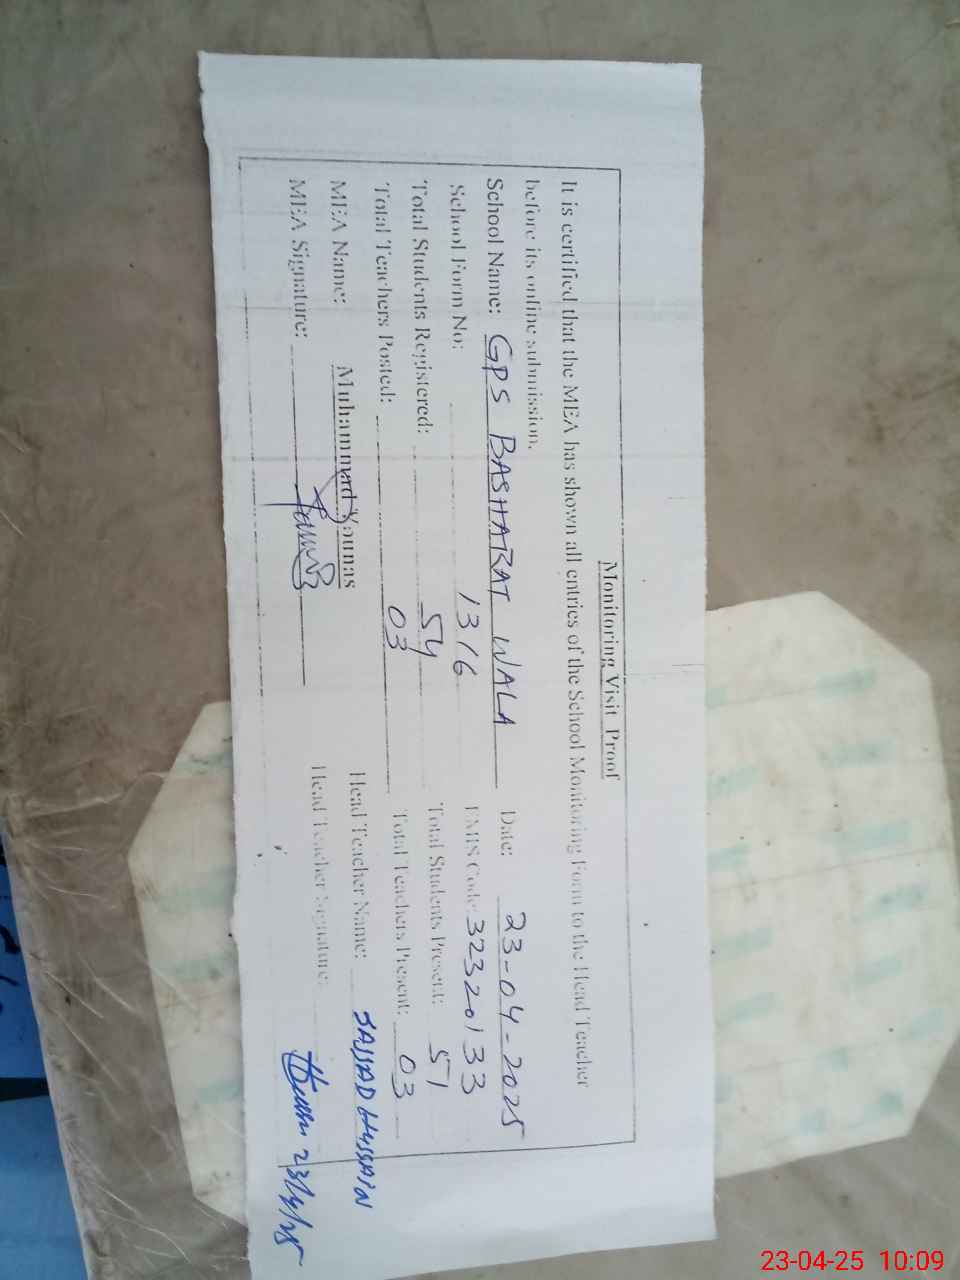 Monitoring Visit Proof
It is certified that the MEA has shown all entries of the School Monitoring Form to the Head Teacher
before its online submission.
School Name: GPS BASHARAT WALA Date: 23-04-2025
School Form No: 1316 EMIS Code: 32320133
Total Students Registered: 54 Total Students Present: 51
Total Teachers Posted: 03 Total Teachers Present: 03
MEA Name: Muhammad Younas Head Teacher Name: SAJJAD HUSSAIN
MEA Signature: Head Teacher Signature: 23/4/25
23-04-25 10:09